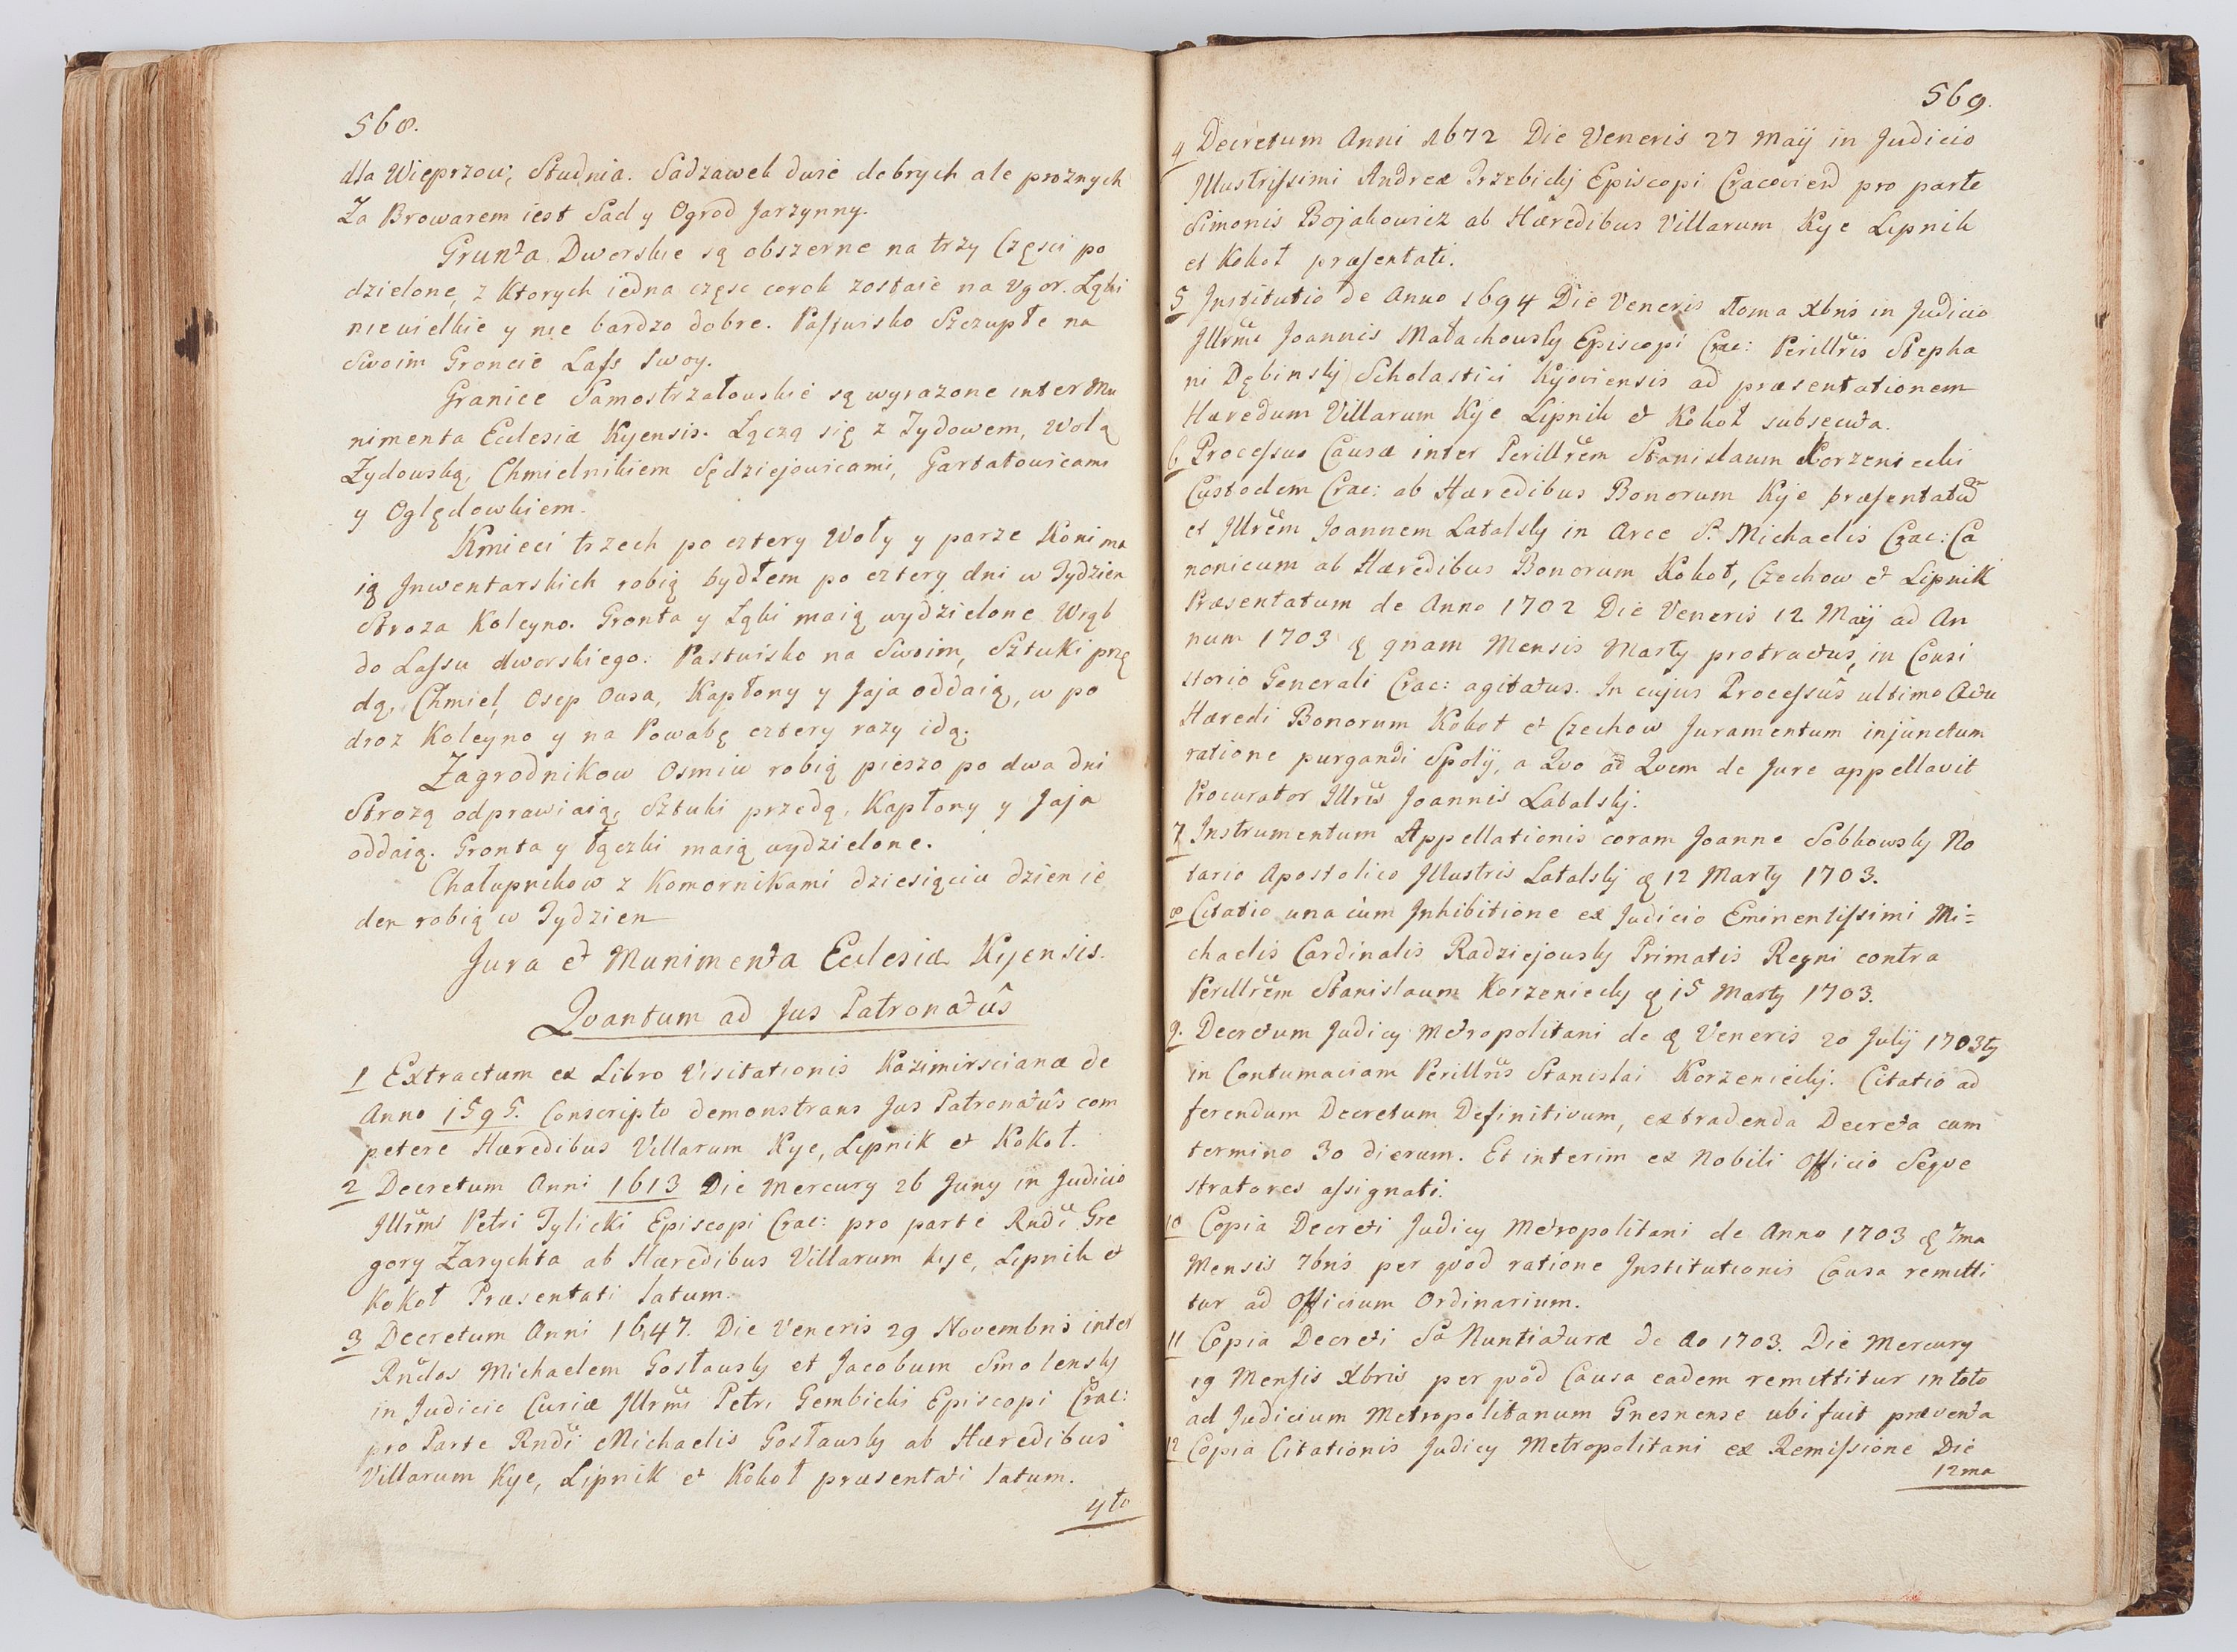 568.
dla Wieprzow, Studnia. Sadzawek dwie dobrych ale proznych
Za Browarem iest Sad y Ogrod Jarzynny.
Grunta Dworskie są obszerne na trzy Części po
dzielone, z Ktorych iedna częsc corok zostaie na Vgor. Łąki
niewielkie y nie bardzo dobre. Passwisko Szczupłe na
Swoim Groncie Lass swoy.
Granice Samostrzałowskie są wyrazone inter Mu
nimenta Ecclesiæ Kyensis. Łączą się z Tydowem, Wolą
Zydowską, Chmielnikiem Sędziejowicami, Gartatowicami
y Oględowkiem.
Kmieci trzech po cztery Woły y parze Koni ma
ią Jnwentarskich robią bydłem po cztery dni w Tydzien
Stroza Koleyno. Gronta y Łąki maią wydzielone Wrąb
do Lassu dworskiego. Pastwisko na Swoim, Sztuki przę
dą, Chmiel, Osep Owsa, Kapłony y Jaja oddaią, w po
droz Koleyno y na Powabę cztery razy idą.
Zagrodnikow Osmiu robią pieszo po dwa dni
Strozą odprawiaią, Sztuki przedą, Kapłony y Jaja
oddaią. Gronta y łączki maią wydzielone.
Chałupnikow z Komornikami dziesiąciu dzien ie
den robią w Tydzien
Jura et Munimenta Ecclesiæ Kyensis.
Qvantum ad Jus Patronatûs
1 Extractum ex Libro Visitationis Kazimirscianæ de
Anno 1595. Conscripto demonstrans Jus Patronatûs com
petere Hæredibus Villarum Kye, Lipnik et Kokot.
2 Decretum Anni 1613 Die Mercury 26 Juny in Judicio
Jllrmi Petri Tylicki Episcopi Crac: pro parte Rndi Gre
gory Zarychta ab Hæredibus Villarum Kye, Lipnik et
Kokot Præsentati latum.
3 Decretum Anni 1647. Die Veneris 29 Novembris inter
Rndos Michaelem Gosławsky et Jacobum Smolensky
in Judicio Curiæ Jllrmi Petri Gembicki Episcopi Crac:
pro Parte Rndi Michaelis Gosławsky ab Hæredibus
Villarum Kye, Lipnik et Kokot præsentati latum.
4to
569.
4 Decretum Anni 1672 Die Veneris 27 Maÿ in Judicio
Jllustrissimi Andreæ Trzebickÿ Episcopi Cracovien pro parte
Simonis Bojakowicz ab Hæredibus Villarum Kye Lipnik
et Kokot præsentati.
5 Jnstitutio de Anno 1694 Die Veneris Xbris in Judicio
Jllrmi Joannis Małachowsky Episcopi Crac: Perillris Stepha
ni Dębinskÿ Scholastici Kÿoviensis ad præsentationem
Hæredum Villarum Kye Lipnik et Kokot subsecuta.
6 Processus Causæ inter Perillrem Stanislaum Korzeniecki
Custodem Crac: ab Hæredibus Bonorum Kye præsentatum
et Jllrem Joannem Latalsky in Arce S. Michaelis Crac: Ca
nonicum ab Hæredibus Bonorum Kokot, Czechow et Lipnik
Præsentatum de Anno 1702 Die Veneris 12 Maÿ ad An
num 1703 qnam Mensis Marty protractus, in Consi
storio Generali Crac: agitatus. In cujus Processûs ultimo Actu
Hæredi Bonorum Kokot et Czechow Juramentum injunctum
ratione purgandi Spolÿ, a Qvo ad Qvem de Jure appellavit
Procurator Jllris Joannis Latalskÿ.
7 Instrumentum Appellationis coram Joanne Sobkowsky No
tario Apostolico Jllustris Latalskÿ 12 Marty 1703.
8 Citatio una cum Jnhibitione ex Judicio Eminentissimi Mi=
chaelis Cardinalis Radziejowsky Primatis Regni contra
Perillrem Stanislaum Korzeniecky 15 Marty 1703.
9. Decretum Judicy Metropolitani de Veneris 20 Julÿ 1703ty
in Contumaciam Perillris Stanislai Korzenieckÿ. Citatio ad
ferendum Decretum Definitivum, extradenda Decreta cum
termino 30 dierum. Et interim ex Nobili Officio Seqve
stratores assignati.
10 Copia Decreti Judicy Metropolitani de Anno 1703 7ma
Mensis 7bris per qvod ratione Jnstitutionis Causa remitti
tur ad Officium Ordinarium.
11 Copia Decreti Sæ Nuntiaturæ de Ao 1703. Die Mercury
19 Mensis Xbris per qvod Causa eadem remittitur in toto
ad Judicium Metropolitanum Gnesnense ubi fuit præventa
12 Copia Citationis Judicy Metropolitani ex Remissione Die
12ma